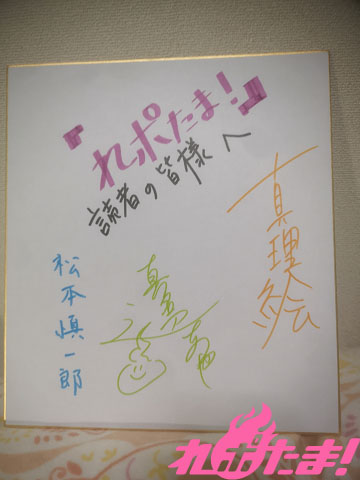 『れポたま！』
読者の皆様へ
真理絵
松本慎一郎
れポたま！